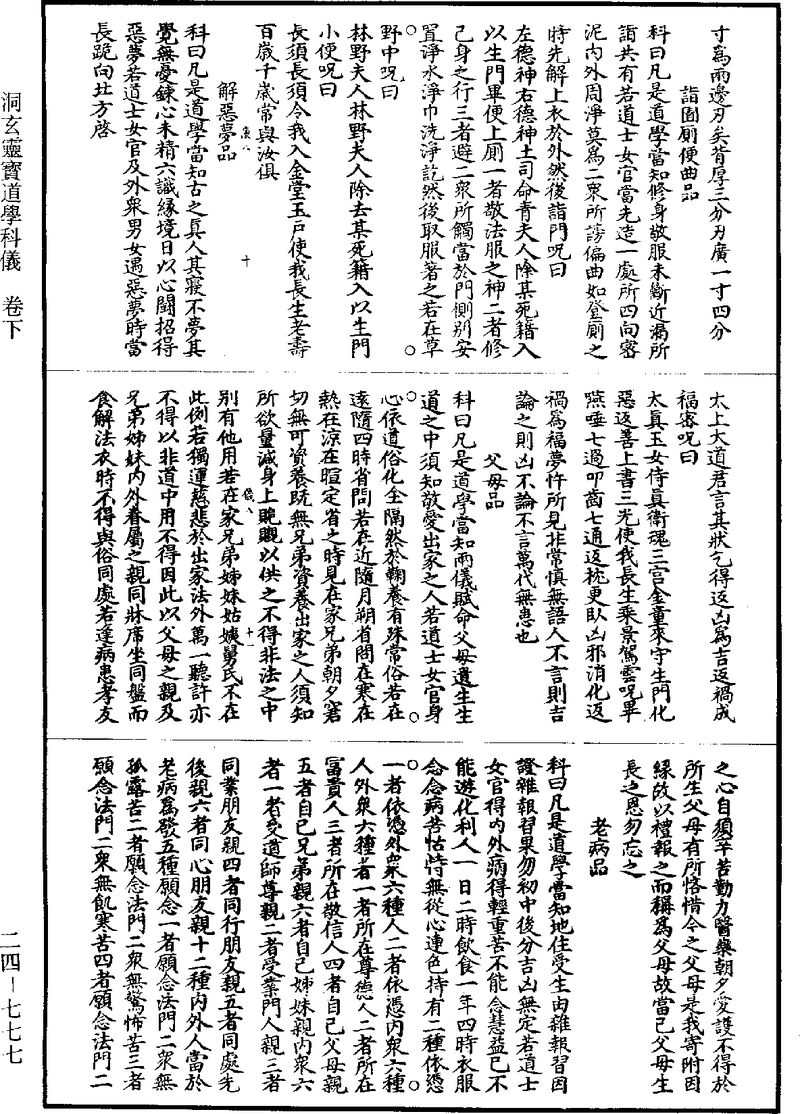 寸為兩邊刃矣背厚三分刃廣一寸四分
詣圊廁便曲品
科曰凡是道學當知修身敬服未斷近漏所
詣共有若道士女官當先造一處所四向密
泥內外周淨莫為二衆所謗偏曲如登廁之
時先解上衣於外然後詣門呪曰
左德神右德神土司命青夫人除某死籍入
以生門畢便上廁一者敬法服之神二者修
己身之行三者避二衆所觸當於門側別安
置淨水淨巾洗淨訖然後取服著之若在草
野中呪曰
林野夫人林野夫人除去某死籍入以生門
小便呪曰
長須長須令我入金堂玉戶使我長生老壽
百歲千歲常與汝俱
解惡夢品
科曰凡是道學當知古之真人其寢不夢其
覺無憂鍊心未精六識緣境日以心鬪招得
惡夢若道士女官及外衆男女遇惡夢時當
長跪向北方啓
太上大道君言其狀乞得返凶為吉返禍成
福密呪曰
太真玉女侍真衛魂三宮金童來守生門化
惡返善上書三光使我長生乘景駕雲呪畢
嚥唾七過叩齒七通返枕更臥凶邪消化返
禍為福夢忤所見非常慎無語人不言則吉
論之則凶不論不言萬代無患也
父母品
科曰凡是道學當知兩儀賦命父母遺生生
道之中須知敬愛出家之人若道士女官身
心依道俗化全隔然於鞠養有殊常俗若在
遠隨四時省問若在近隨月朔省問在寒在
熱在涼在暄定省之時見在家兄弟朝夕窘
切無可資養既無兄弟資養出家之人須知
所欲量減身上𫎇䞋以供之不得非法之中
別有他用若在家兄弟姊妹姑姨舅氏不在
此例若獨運慈悲於出家法外萬一聽許亦
不得以非道中用不得因此以父母之親及
兄弟姊妹內外眷屬之親同牀席坐同盤而
食解法衣時不得與俗同處若逢病患孝友
之心自須辛苦勤力醫藥朝夕愛護不得於
所生父母有所悋惜今之父母是我寄附因
緣故以禮報之而稱為父母故當己父母生
長之恩勿忘之
老病品
科曰凡是道學當知地住受生由雜報習因
證雜報習果勿初中後分吉凶無定若道士
女官得內外病得輕重苦不能念慧益己不
能遊化利人一日二時飲食一年四時衣服
念念病苦怙恃無從心連色持有二種依憑
一者依憑外衆六種人二者依憑內衆六種
人外衆六種者一者所在尊德人二者所在
富貴人三者所在敬信人四者自己父母親
五者自己兄弟親六者自己姊妹親內衆六
者一者受道師尊親二者受業門人親三者
同業朋友親四者同行朋友親五者同處先
後親六者同心朋友親十二種內外人當於
老病為發五種願念一者願念法門二衆無
孤露苦二者願念法門二衆無驚怖苦三者
願念法門二衆無飢寒苦四者願念法門二
洞玄靈寶道學科儀 卷下
二四-七七七